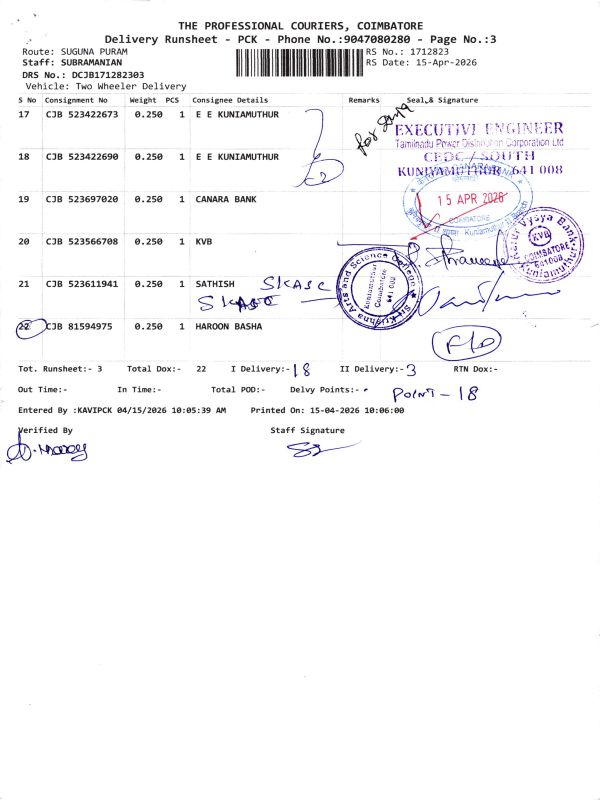 THE PROFESSIONAL COURIERS, COIMBATORE
Delivery Runsheet - PCK - Phone No.:9047080280 - Page No.:3
Route: SUGUNA PURAM
RS No.: 1712823
Staff: SUBRAMANIAN
RS Date: 15-Apr-2026
DRS No.: DCJB171282303
Vehicle: Two Wheeler Delivery
S No Consignment No Weight PCS Consignee Details Remarks Seal,& Signature
17 CJB 523422673 0.250 1 E E KUNIAMUTHUR
for
EXECUTIVE ENGINEER
Tamilnadu Power Distribution Corporation Ltd
18 CJB 523422690 0.250 1 E E KUNIAMUTHUR
CEDC / SOUTH
KUNIYAMUTHUR, 641 008
19 CJB 523697020 0.250 1 CANARA BANK
15 APR 2026
COIMBATORE
Kuniamuthur Branch
20 CJB 523566708 0.250 1 KVB
Karur Vysya Bank
KVB
COIMBATORE
641008
Kuniamuthur
21 CJB 523611941 0.250 1 SATHISH SKASC
SKASC
Sri Krishna Arts and Science College
Kuniamuthur
Coimbatore
641 008
22 CJB 81594975 0.250 1 HAROON BASHA
F/O
Tot. Runsheet:- 3 Total Dox:- 22 I Delivery:- 18 II Delivery:- 3 RTN Dox:-
Out Time:- In Time:- Total POD:- Delvy Points:- POINT - 18
Entered By :KAVIPCK 04/15/2026 10:05:39 AM Printed On: 15-04-2026 10:06:00
Verified By Staff Signature